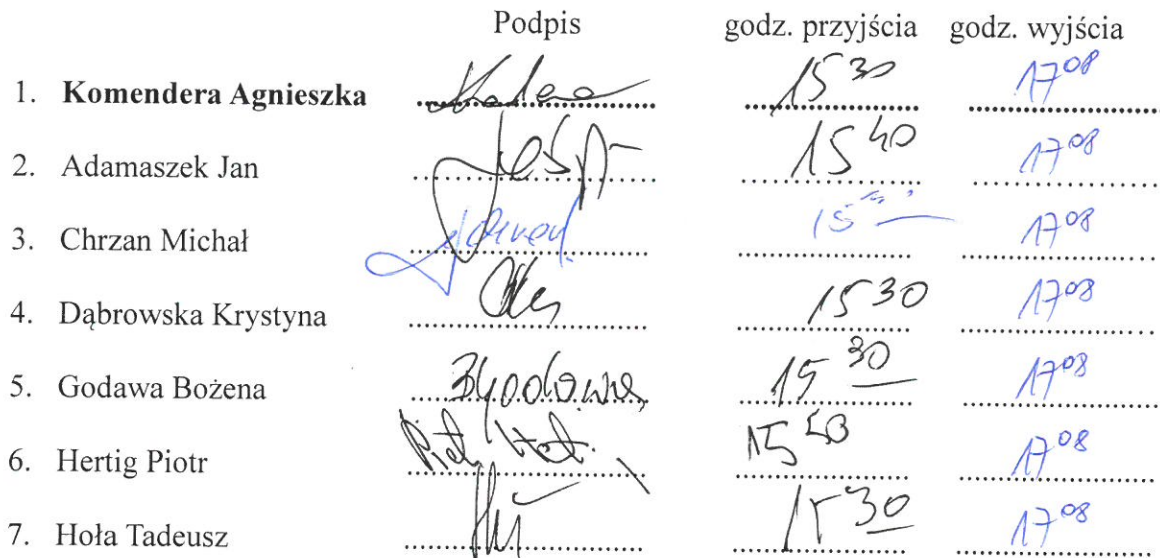 Podpis godz. przyjścia godz. wyjścia
1. Komendera Agnieszka 15 30 17 08
2. Adamaszek Jan 15 40 17 08
3. Chrzan Michał 15 17 08
4. Dąbrowska Krystyna 15 30 17 08
5. Godawa Bożena BGodawa 15 30 17 08
6. Hertig Piotr 15 50 17 08
7. Hoła Tadeusz 15 30 17 08